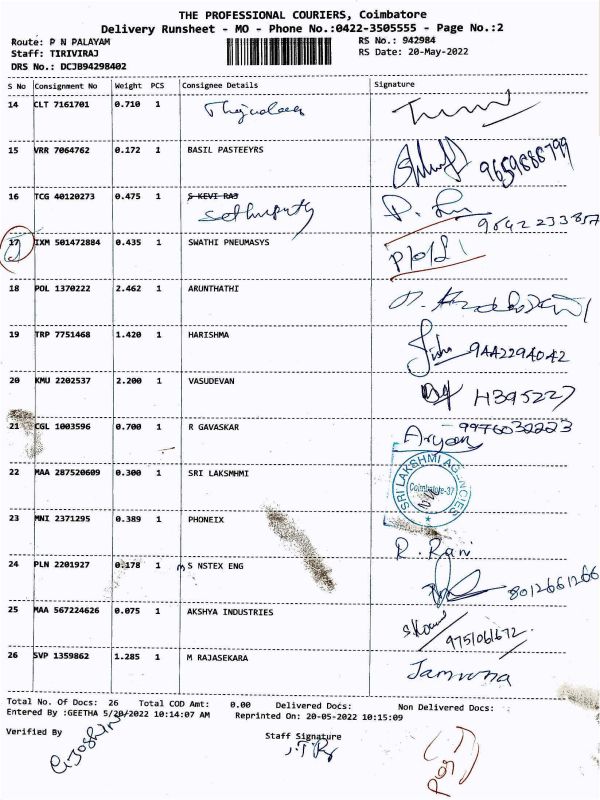 THE PROFESSIONAL COURIERS, Coimbatore
Delivery Runsheet - MO - Phone No.:0422-3505555 - Page No.:2
Route: P N PALAYAM RS No.: 942984
Staff: TIRIVIRAJ RS Date: 20-May-2022
DRS No.: DCJB94298402
S No Consignment No Weight PCS Consignee Details Signature
14 CLT 7161701 0.710 1
15 VRR 7064762 0.172 1 BASIL PASTEEYRS 9659888799
16 TCG 40120273 0.475 1 S KEVI RAJ
9642233857
17 IXM 501472884 0.435 1 SWATHI PNEUMASYS
18 POL 1370222 2.462 1 ARUNTHATHI
19 TRP 7751468 1.420 1 HARISHMA 9442294042
20 KMU 2202537 2.200 1 VASUDEVAN H395227
21 CGL 1003596 0.700 1 R GAVASKAR Aryan 9976032223
22 MAA 287520609 0.300 1 SRI LAKSMHMI SRI LAKSHMI AGENCIES Coimbatore-37
23 MNI 2371295 0.389 1 PHONEIX R. Rani
24 PLN 2201927 0.178 1 M S NSTEX ENG 8012661266
25 MAA 567224626 0.075 1 AKSHYA INDUSTRIES 9751061672
26 SVP 1359862 1.285 1 M RAJASEKARA Jamuna
Total No. Of Docs: 26 Total COD Amt: 0.00 Delivered Docs: Non Delivered Docs:
Entered By :GEETHA 5/20/2022 10:14:07 AM Reprinted On: 20-05-2022 10:15:09
Verified By Staff Signature